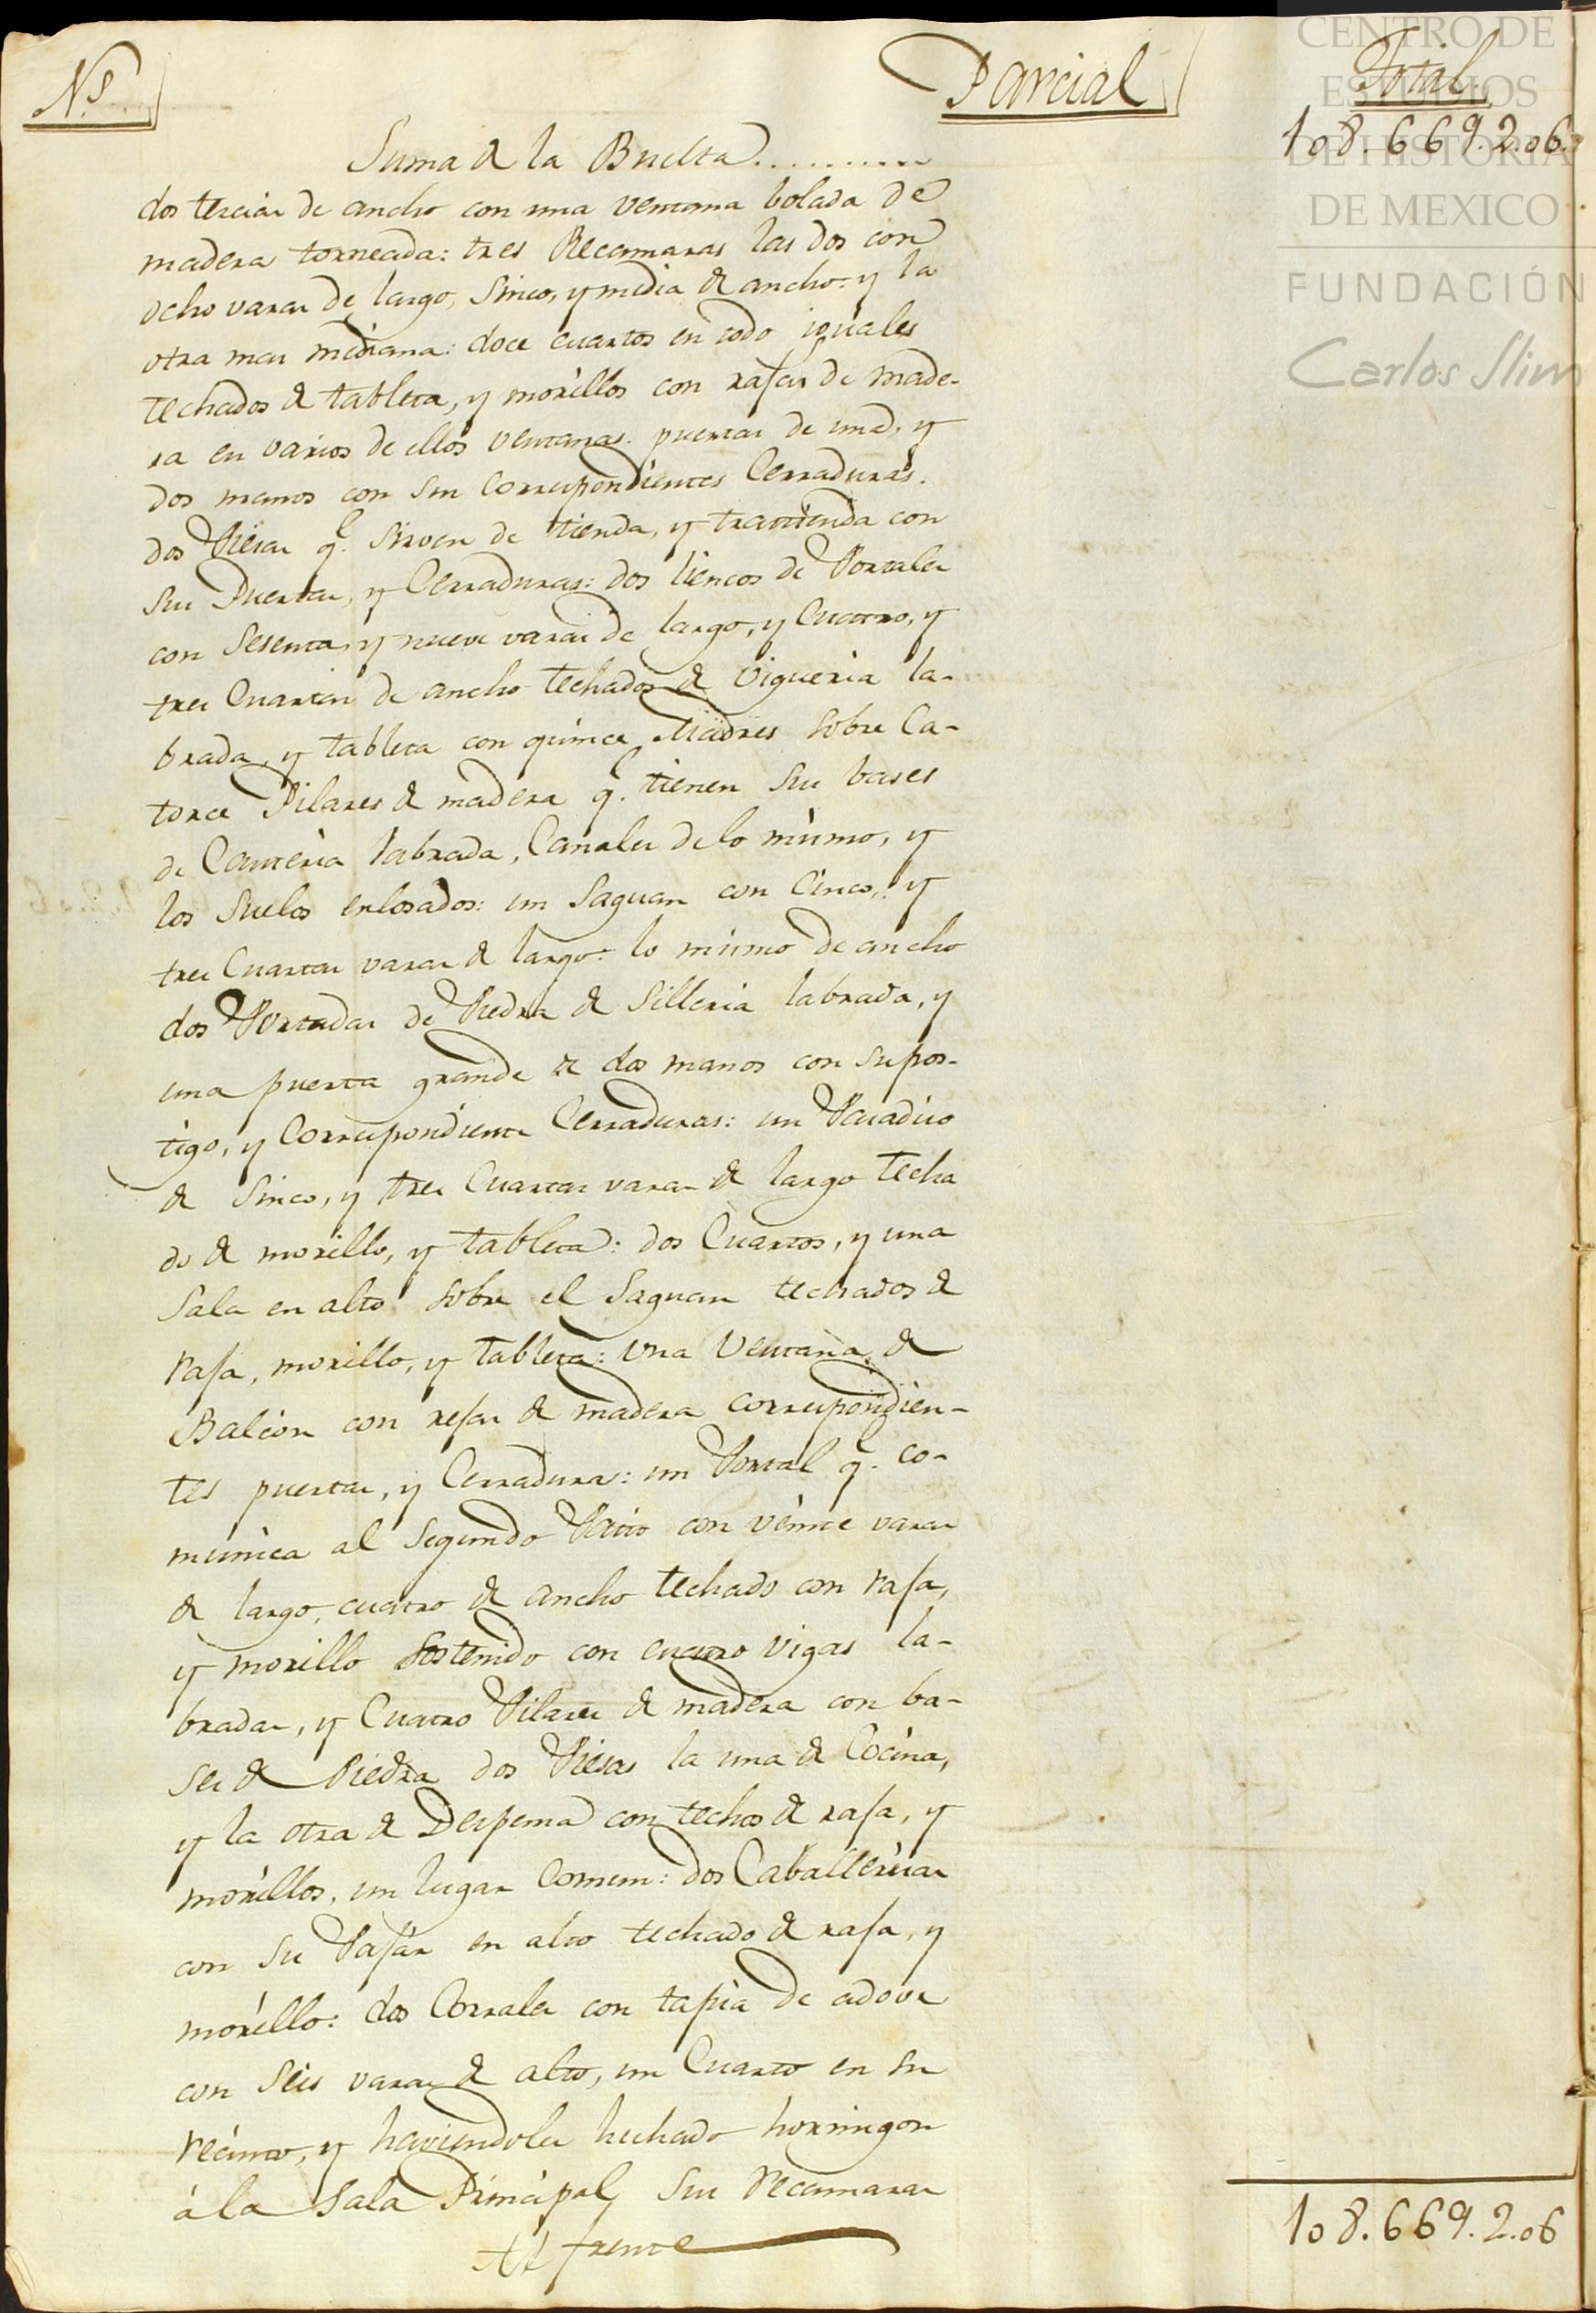 N.s
Parcial
Total.
Suma de la Buelta...........
108.669.2.06.
dos tercias de ancho con una ventana bolada de
madera torneada: tres Recamaras las dos con
ocho varas de largo, Sinco, y media de ancho: y la
otra mas mediana: doce cuartos en todo iguales
techados de tableta, y morillos con rafas de made-
ra en varios de ellos ventanas. puertas de una, y
dos manos con sus Correspondientes Cerraduras.
dos Piesas q.e Sirven de tienda, y trastienda con
sus Puertas, y Cerraduras: dos liensos de Portales
con Sesenta, y nueve varas de largo, y Cuatro, y
tres Cuartas de ancho techados de Vigueria la-
brada, y tableta con quince Madres Sobre Ca-
torce Pilares de madera q.e tienen sus bases
de Canteria labrada, Canales de lo mismo, y
los Suelos enlosados: un Saguan con Cinco, y
tres Cuartas varas de largo: lo mismo de ancho
dos Portadas de Piedra de Silleria labrada, y
una puerta grande de dos manos con su pos-
tigo, y Correspondiente Cerraduras: un Pasadiso
de Sinco, y tres Cuartas varas de largo techa
do de morillo, y tableta: dos Cuartos, y una
Sala en alto Sobre el Saguan techados de
rafa, morillo, y tableta: una Ventana de
Balcon con rejas de madera correspondien-
tes puertas, y Cerradura: un Portal q.e co-
munica al Segundo Patio con veinte varas
de largo, cuatro de ancho techado con rafa,
y morillo Sostenido con cuatro vigas la-
bradas, y Cuatro Pilares de madera con ba-
ses de Piedra dos Piesas la una de Cocina,
y la otra de Despensa con techos de rafa, y
morillos, un lugar Comun: dos Caballerisas
con su Pajar en alto techado de rafa, y
morillo: dos Corrales con tapia de adove
con Seis varas de alto, un Cuarto en su
recinto, y haviendoles hechado hormigon
á la Sala Principal Sus recamaras
Al frente
108.669.2.06
CENTRO DE
ESTUDIOS
DE HISTORIA
DE MEXICO
FUNDACIÓN
Carlos Slim